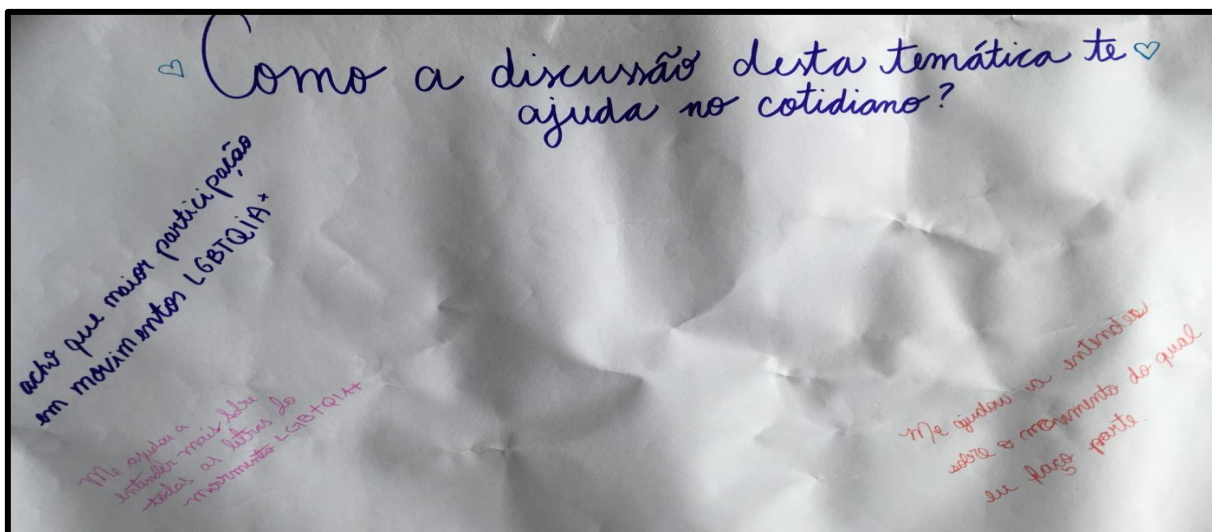 Como a discussão desta temática te
ajuda no cotidiano?
acho que maior participação
em movimentos LGBTQIA+
Me ajudou a
entender mais sobre
todas as letras do
movimento LGBTQIA+
Me ajudou a entender
sobre o movimento do qual
eu faço parte.